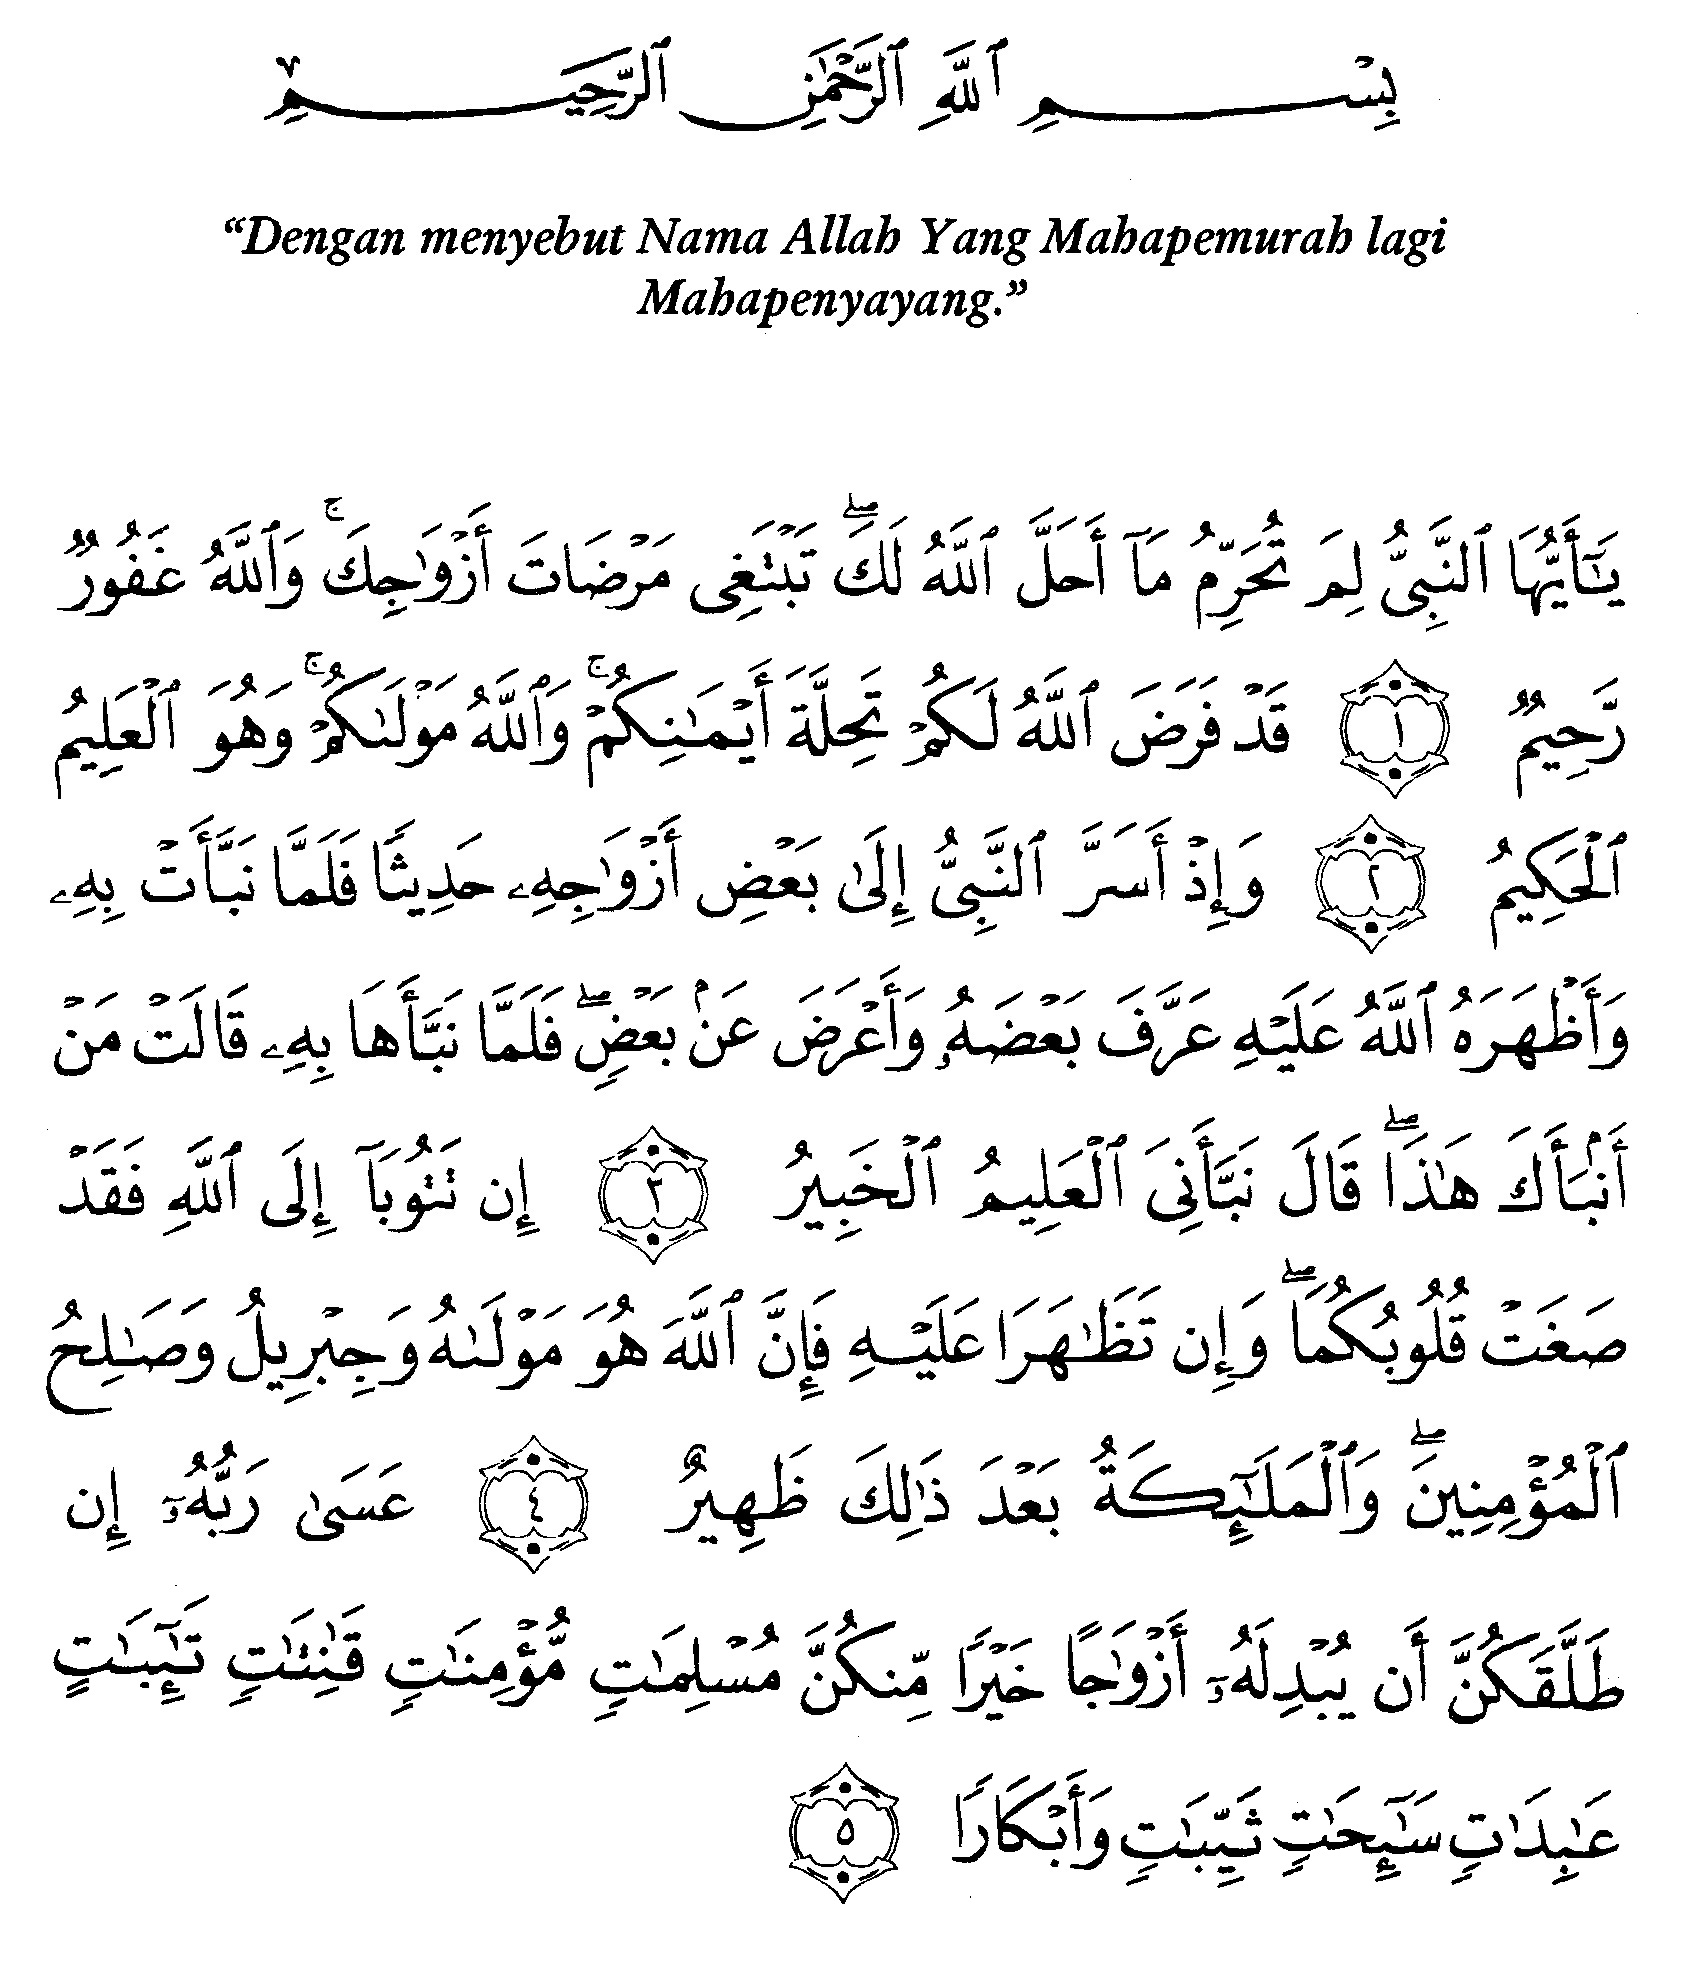 بِسْمِ ٱللَّهِ ٱلرَّحْمَٰنِ ٱلرَّحِيمِ
“Dengan menyebut Nama Allah Yang Mahapemurah lagi
Mahapenyayang.”
يَٰٓأَيُّهَا ٱلنَّبِىُّ لِمَ تُحَرِّمُ مَآ أَحَلَّ ٱللَّهُ لَكَ ۖ تَبْتَغِى مَرْضَاتَ أَزْوَٰجِكَ ۚ وَٱللَّهُ غَفُورٌ
رَّحِيمٌ ١ قَدْ فَرَضَ ٱللَّهُ لَكُمْ تَحِلَّةَ أَيْمَٰنِكُمْ ۚ وَٱللَّهُ مَوْلَىٰكُمْ ۚ وَهُوَ ٱلْعَلِيمُ
ٱلْحَكِيمُ ٢ وَإِذْ أَسَرَّ ٱلنَّبِىُّ إِلَىٰ بَعْضِ أَزْوَٰجِهِۦ حَدِيثًا فَلَمَّا نَبَّأَتْ بِهِۦ
وَأَظْهَرَهُ ٱللَّهُ عَلَيْهِ عَرَّفَ بَعْضَهُۥ وَأَعْرَضَ عَنۢ بَعْضٍ ۖ فَلَمَّا نَبَّأَهَا بِهِۦ قَالَتْ مَنْ
أَنۢبَأَكَ هَٰذَا ۖ قَالَ نَبَّأَنِىَ ٱلْعَلِيمُ ٱلْخَبِيرُ ٣ إِن تَتُوبَآ إِلَى ٱللَّهِ فَقَدْ
صَغَتْ قُلُوبُكُمَا ۖ وَإِن تَظَٰهَرَا عَلَيْهِ فَإِنَّ ٱللَّهَ هُوَ مَوْلَىٰهُ وَجِبْرِيلُ وَصَٰلِحُ
ٱلْمُؤْمِنِينَ ۖ وَٱلْمَلَٰٓئِكَةُ بَعْدَ ذَٰلِكَ ظَهِيرٌ ٤ عَسَىٰ رَبُّهُۥٓ إِن
طَلَّقَكُنَّ أَن يُبْدِلَهُۥٓ أَزْوَٰجًا خَيْرًا مِّنكُنَّ مُسْلِمَٰتٍ مُّؤْمِنَٰتٍ قَٰنِتَٰتٍ تَٰٓئِبَٰتٍ
عَٰبِدَٰتٍ سَٰٓئِحَٰتٍ ثَيِّبَٰتٍ وَأَبْكَارًا ٥